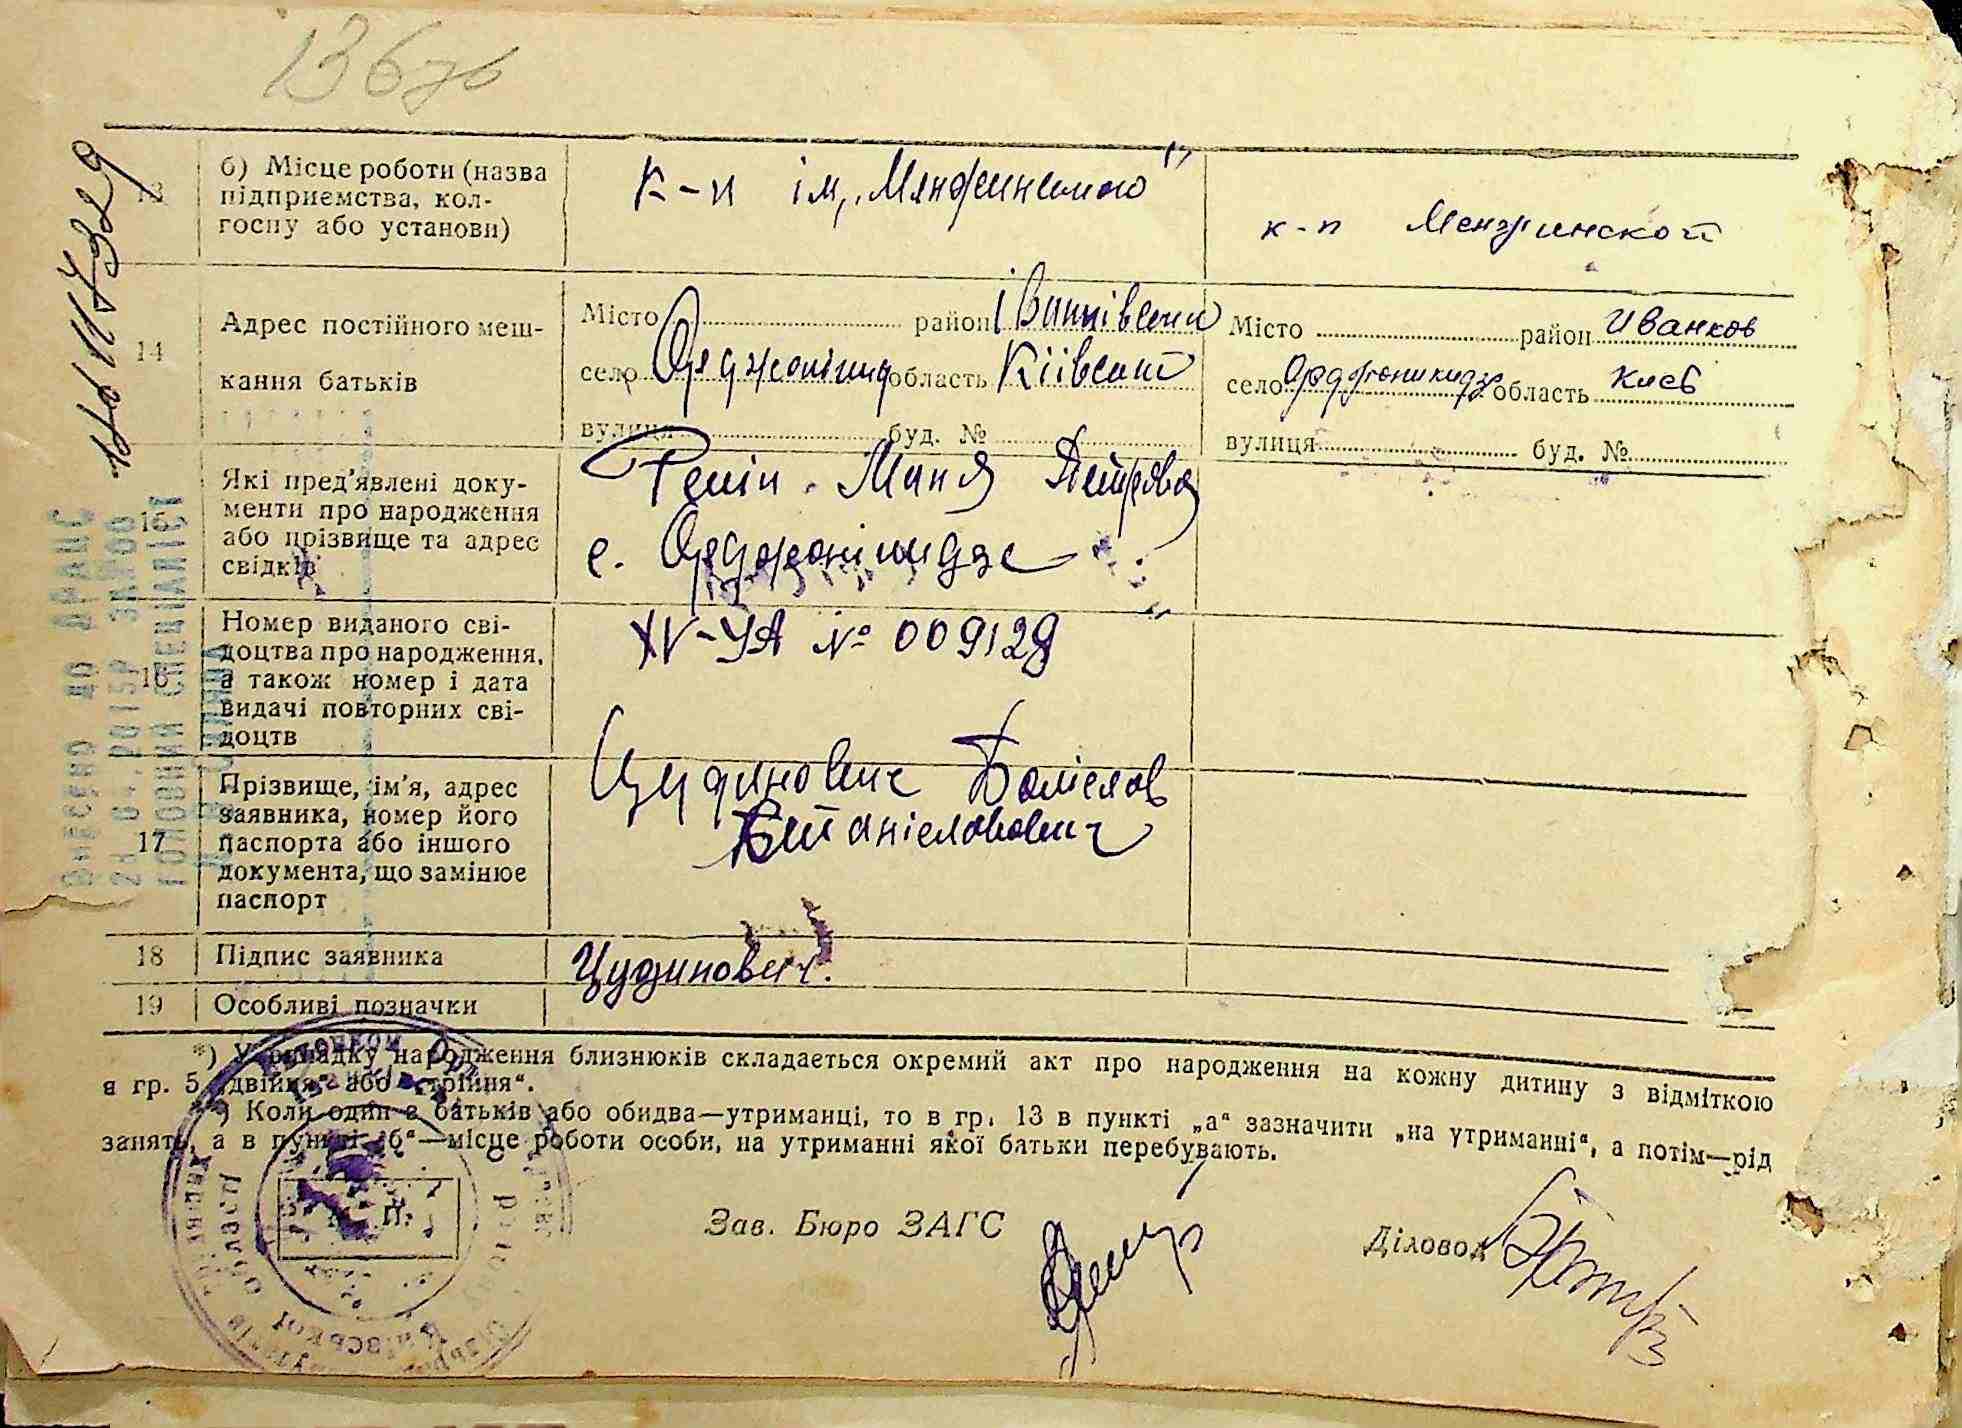 136 зв
б) Місце роботи (назва
підприємства, кол-
госпу або установи)
к-п ім. „Менжинського"
к-п Менжинской
14
Адрес постійного меш-
кання батьків
Місто район Іванківський
село Орджонікідзе область Київський
вулиця буд. №
Місто район Иванков
село Орджоникидзе область Киев
вулиця буд. №
Які пред'явлені доку-
менти про народження
або прізвище та адрес
свідків
Маня Петровна
с. Орджонікідзе
16
Номер виданого сві-
доцтва про народження,
а також номер і дата
видачі повторних сві-
доцтв
XV-УА № 009129
17
Прізвище, ім'я, адрес
заявника, номер його
паспорта або іншого
документа, що замінює
паспорт
Цудинович Болісслав
Вітаніславович
18
Підпис заявника
Цудинович.
19
Особливі позначки
*) У випадку народження близнюків складається окремий акт про народження на кожну дитину з відміткою
в гр. 5 „двійня" або „трійня".
) Коли один з батьків або обидва—утриманці, то в гр. 13 в пункті „а" зазначити „на утриманні", а потім—рід
занять, а в пункті „б"—місце роботи особи, на утриманні якої батьки перебувають.
Зав. Бюро ЗАГС
Діловод